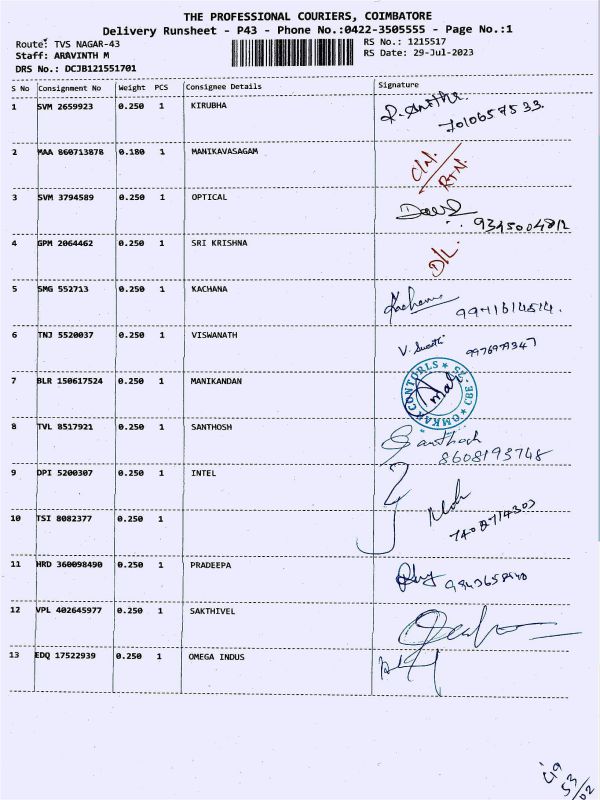 THE PROFESSIONAL COURIERS, COIMBATORE
Delivery Runsheet - P43 - Phone No.:0422-3505555 - Page No.:1
Route: TVS NAGAR-43 RS No.: 1215517
Staff: ARAVINTH M RS Date: 29-Jul-2023
DRS No.: DCJB121551701
S No Consignment No Weight PCS Consignee Details Signature
1 SVM 2659923 0.250 1 KIRUBHA
7010657533
2 MAA 860713878 0.180 1 MANIKAVASAGAM C/N. RTN.
3 SVM 3794589 0.250 1 OPTICAL
4 GPM 2064462 0.250 1 SRI KRISHNA D/L.
5 SMG 552713 0.250 1 KACHANA Kachana
6 TNJ 5520037 0.250 1 VISWANATH V. Swathi
7 BLR 150617524 0.250 1 MANIKANDAN OMKAR CONTORLS CBE
8 TVL 8517921 0.250 1 SANTHOSH Santhosh
8608193748
9 DPI 5200307 0.250 1 INTEL
10 TSI 8082377 0.250 1
11 HRD 360098490 0.250 1 PRADEEPA
12 VPL 402645977 0.250 1 SAKTHIVEL
13 EDQ 17522939 0.250 1 OMEGA INDUS
53/02